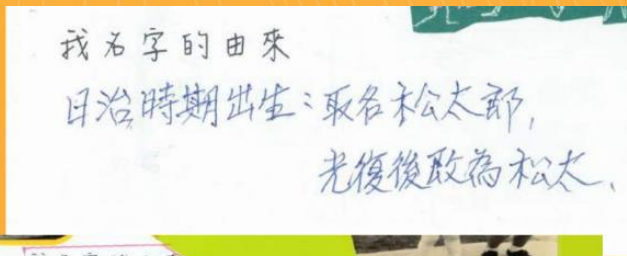 我名字的由來
日治時期出生：取名松太郎,
光復後改為松太、